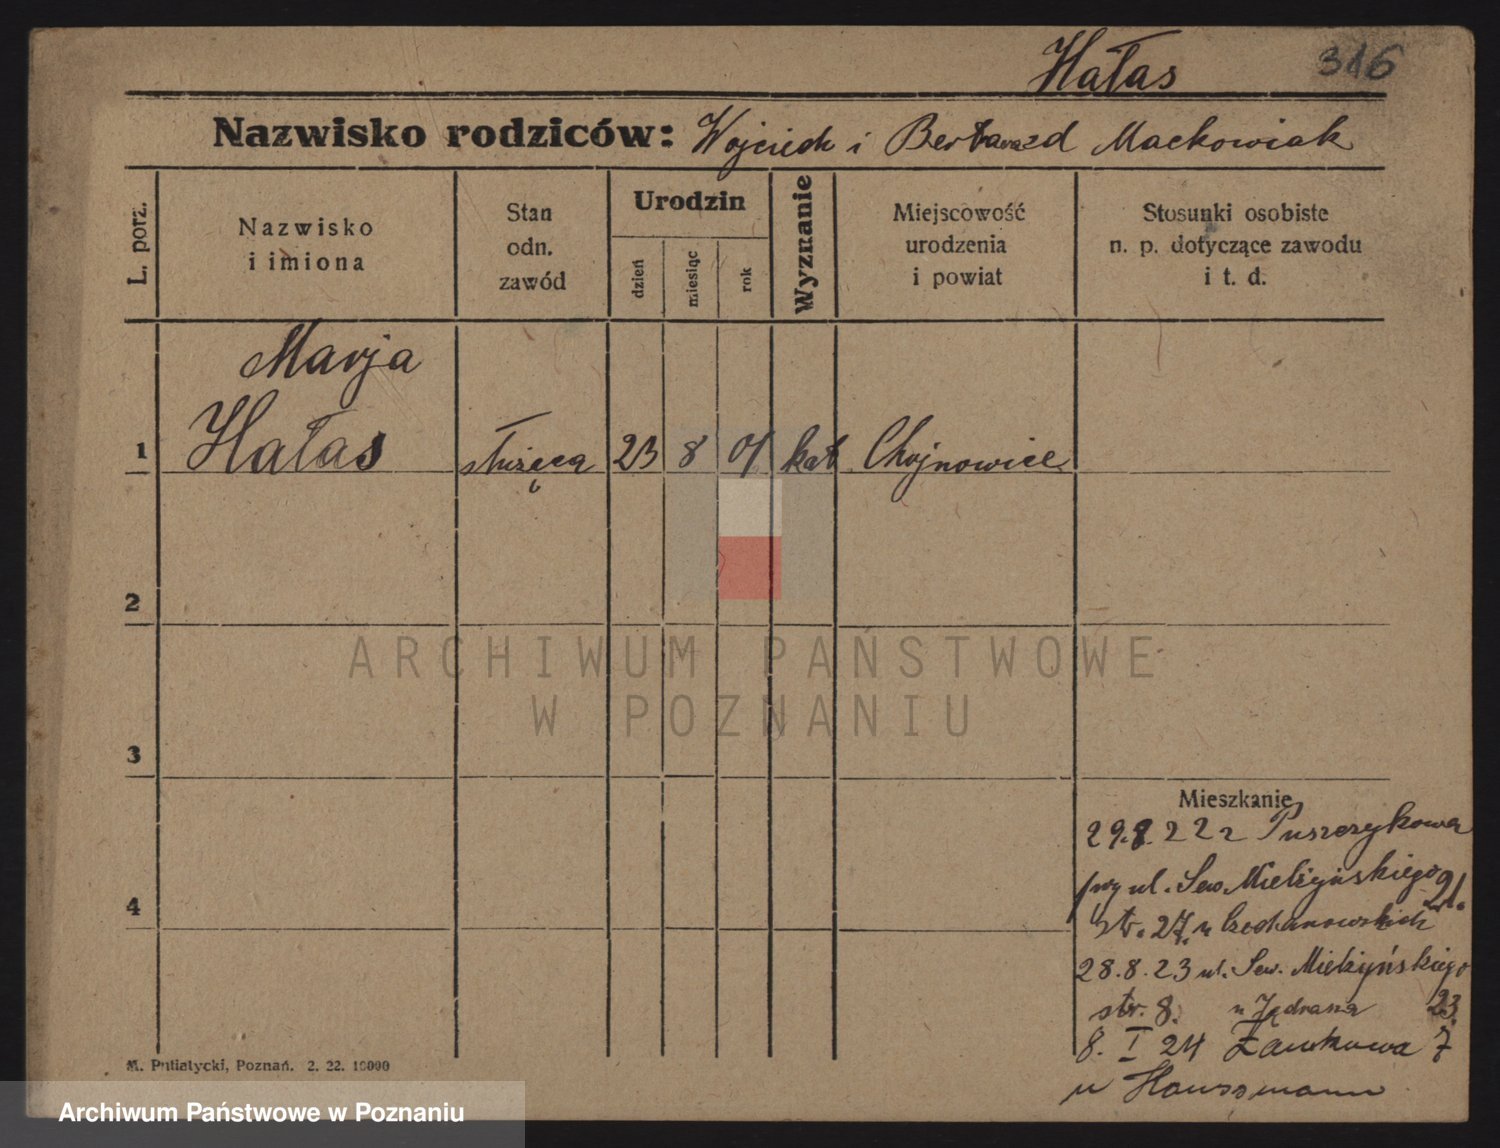 Hałas 316
Nazwisko rodziców: Wojciech i Berta Maćkowiak
L. porz.
Nazwisko
i imiona
Stan
odn.
zawód
Urodzin
dzień
miesiąc
rok
Wyznanie
Miejscowość
urodzenia
i powiat
Stosunki osobiste
n. p. dotyczące zawodu
i t. d.
Marja
1 Hałas służąca 23 8 01 kat Chojnowice
2
3
4
Mieszkanie
29.8.22 z Puszczykowa
przy ul. Sew. Mielżyńskiego 21.
str. 27. u Czechanowskich
28.8.23 ul. Sew. Mielżyńskiego
str. 8. u Jądrasza 23.
8. I 24 Zamkowa 7
u Haussmann
M. Putiatycki, Poznań. 2. 22. 10000
ARCHIWUM PAŃSTWOWE
W POZNANIU
Archiwum Państwowe w Poznaniu